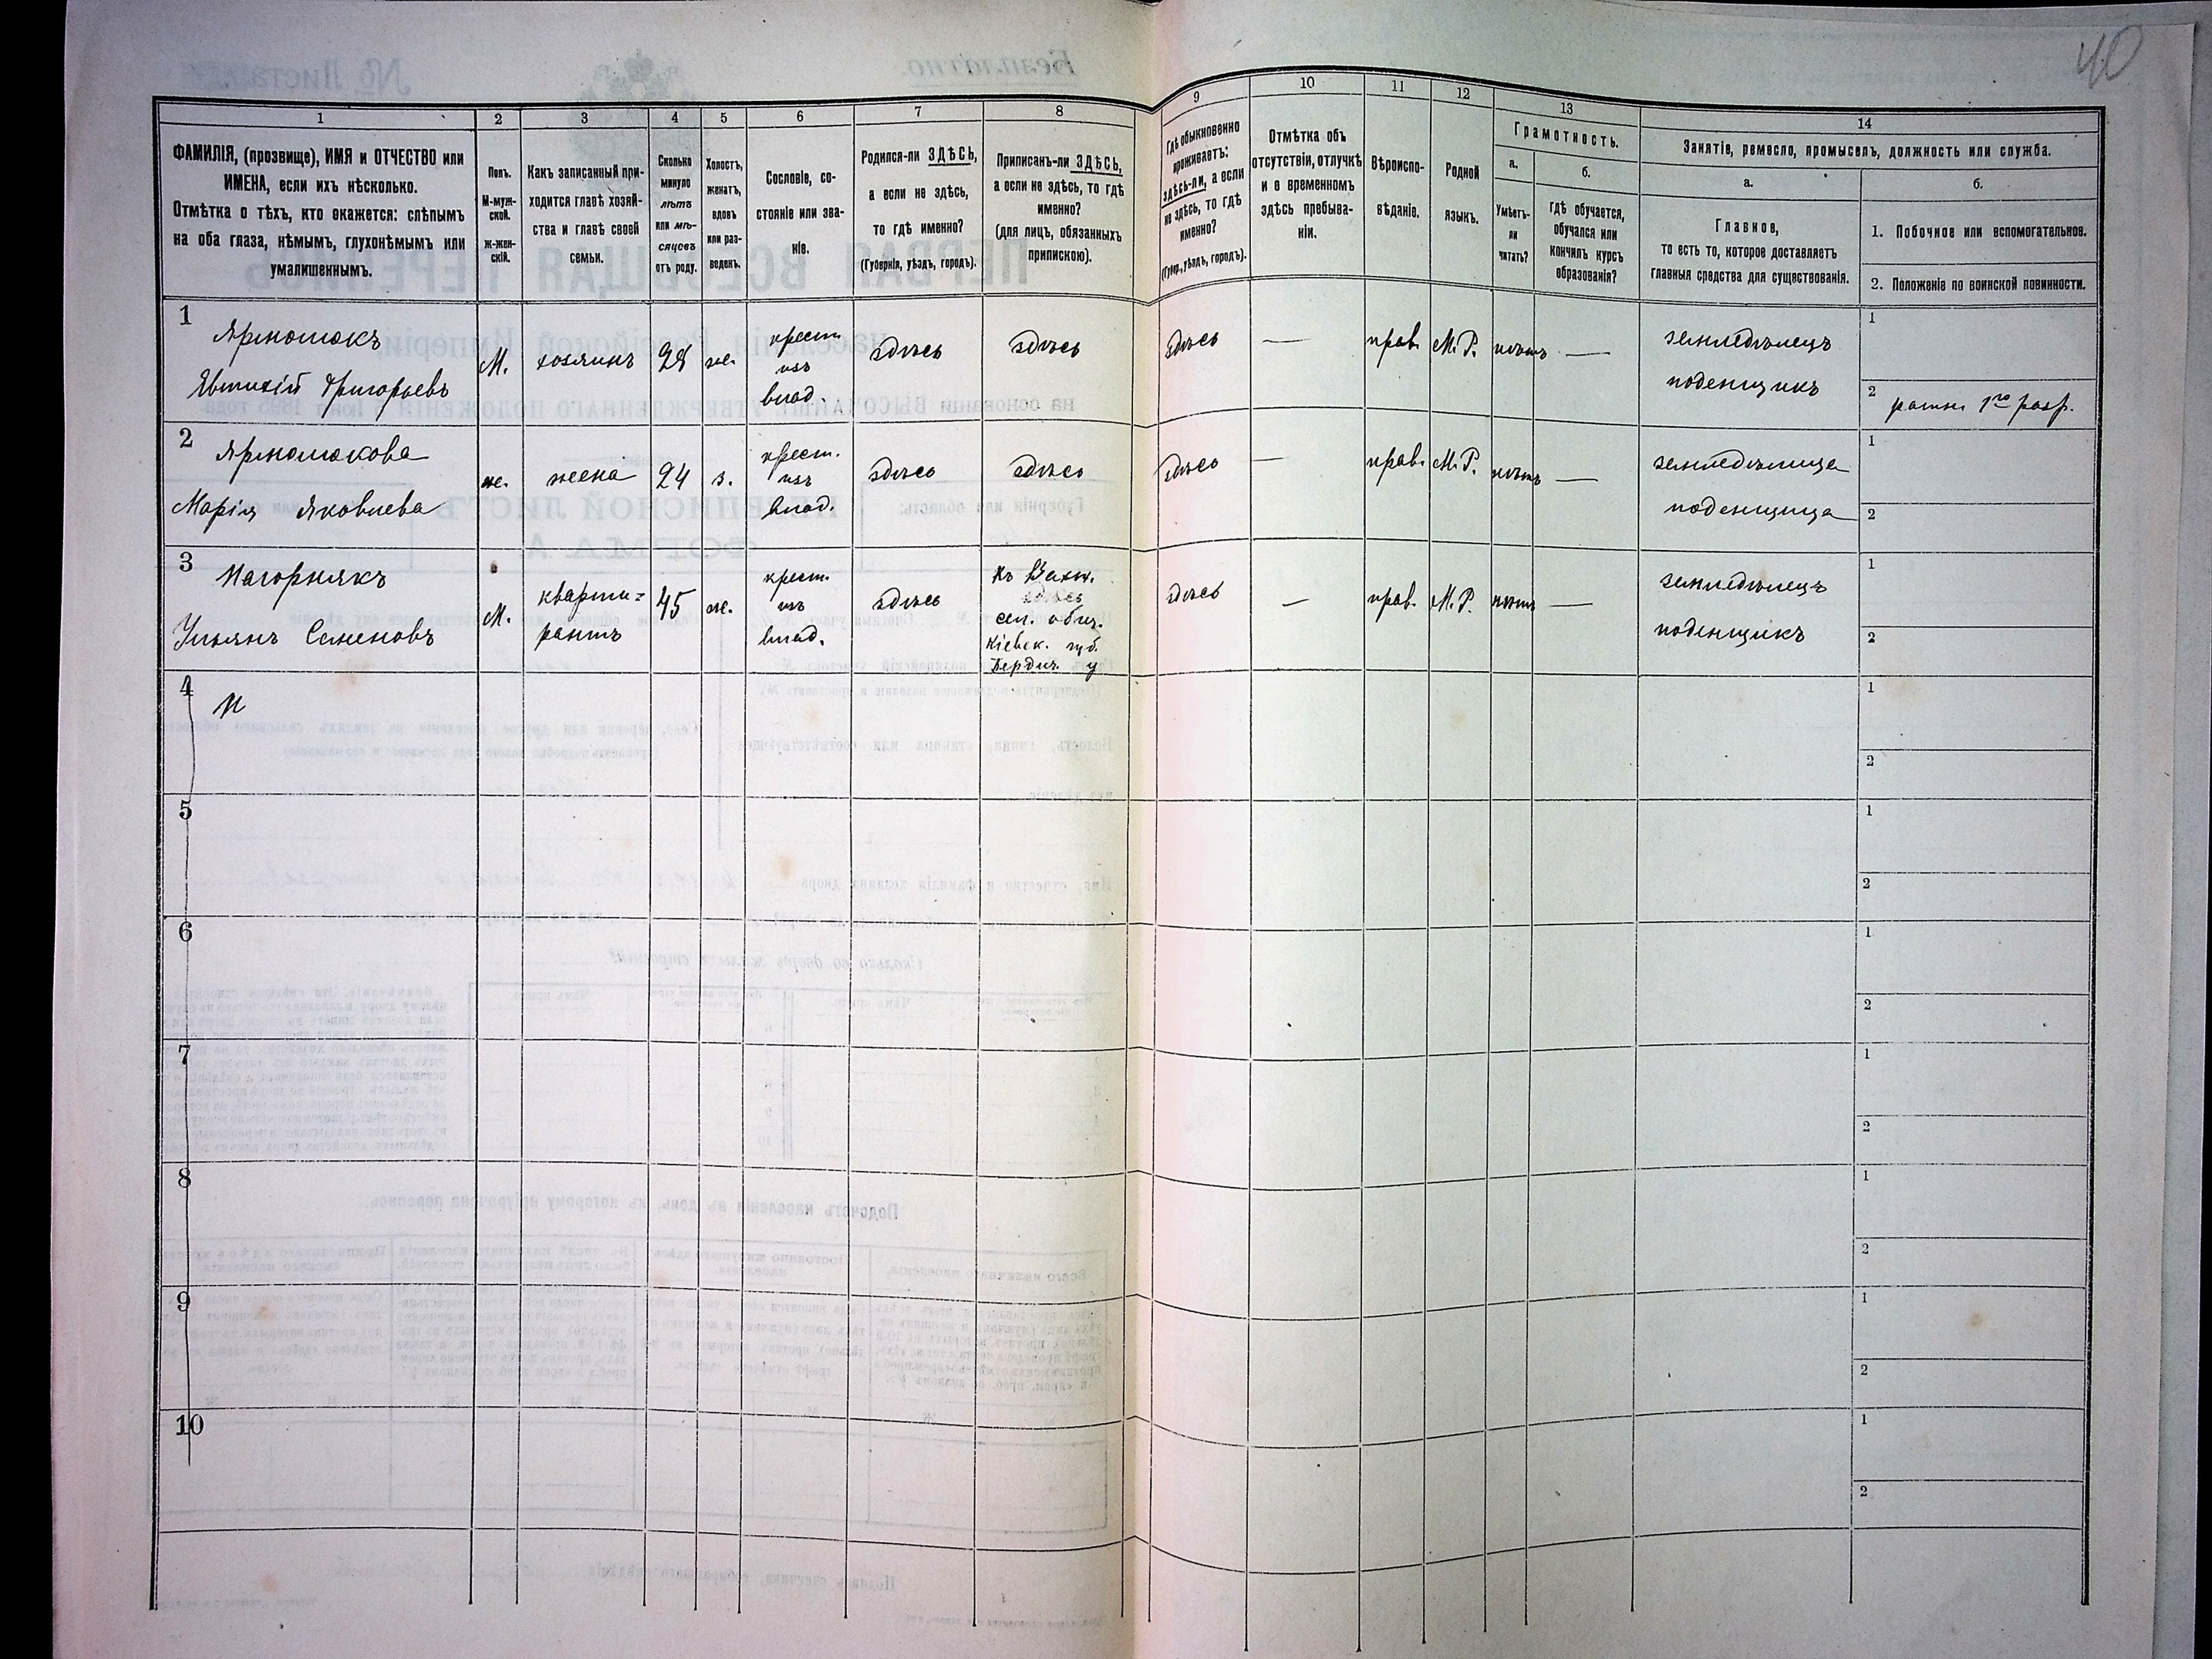 40
1 2 3 4 5 6 7 8 9 10 11 12 13 14
ФАМИЛІЯ, (прозвище), ИМЯ и ОТЧЕСТВО или
ИМЕНА, если ихъ нѣсколько.
Отмѣтка о тѣхъ, кто окажется: слѣпымъ
на оба глаза, нѣмымъ, глухонѣмымъ или
умалишеннымъ.
Полъ.
М-муж-
ской.
Ж-жен-
скій.
Какъ записанный при-
ходится главѣ хозяй-
ства и главѣ своей
семьи.
Сколько
минуло
лѣтъ
или мѣ-
сяцевъ
отъ роду.
Холостъ,
женатъ,
вдовъ
или раз-
веденъ.
Сословіе, со-
стояніе или зва-
ніе.
Родился-ли ЗДѢСЬ,
а если не здѣсь,
то гдѣ именно?
(Губернія, уѣздъ, городъ).
Приписанъ-ли ЗДѢСЬ,
а если не здѣсь, то гдѣ
именно?
(для лицъ, обязанныхъ
припискою).
Гдѣ обыкновенно
проживаетъ:
здѣсь-ли, а если
не здѣсь, то гдѣ
именно?
(Губер., уѣздъ, городъ).
Отмѣтка объ
отсутствіи, отлучкѣ
и о временномъ
здѣсь пребыва-
ніи.
Вѣроиспо-
вѣданіе.
Родной
языкъ.
Грамотность.
а.
Умѣетъ-
ли
читать?
б.
гдѣ обучается,
обучался или
кончилъ курсъ
образованія?
Занятіе, ремесло, промыселъ, должность или служба.
а.
Главное,
то есть то, которое доставляетъ
главныя средства для существованія.
б.
1. Побочное или вспомогательное.
2. Положеніе по воинской повинности.
1
Ярмолюкъ
Евтихій Григорьевъ
М.
хозяинъ
28
ж.
крест.
изъ
влад.
здѣсь
здѣсь
здѣсь
—
прав.
М. Р.
нѣтъ
—
земледѣлецъ
поденщикъ
1
2 ратн. 1го разр.
2
Ярмолюкова
Марія Яковлева
ж.
жена
24
з.
крест.
изъ
влад.
здѣсь
здѣсь
здѣсь
—
прав.
М. Р.
нѣтъ
—
земледѣлица
поденщица
1
2
3
Нагорнякъ
Ульянъ Семеновъ
М.
кварти=
рантъ
45
ж.
крест.
изъ
влад.
здѣсь
сел. общ.
Кіевск. губ.
Бердич. у
здѣсь
—
прав.
М. Р.
нѣтъ
—
земледѣлецъ
поденщикъ
1
2
4
1
2
5
1
2
6
1
2
7
1
2
8
1
2
9
1
2
10
1
2